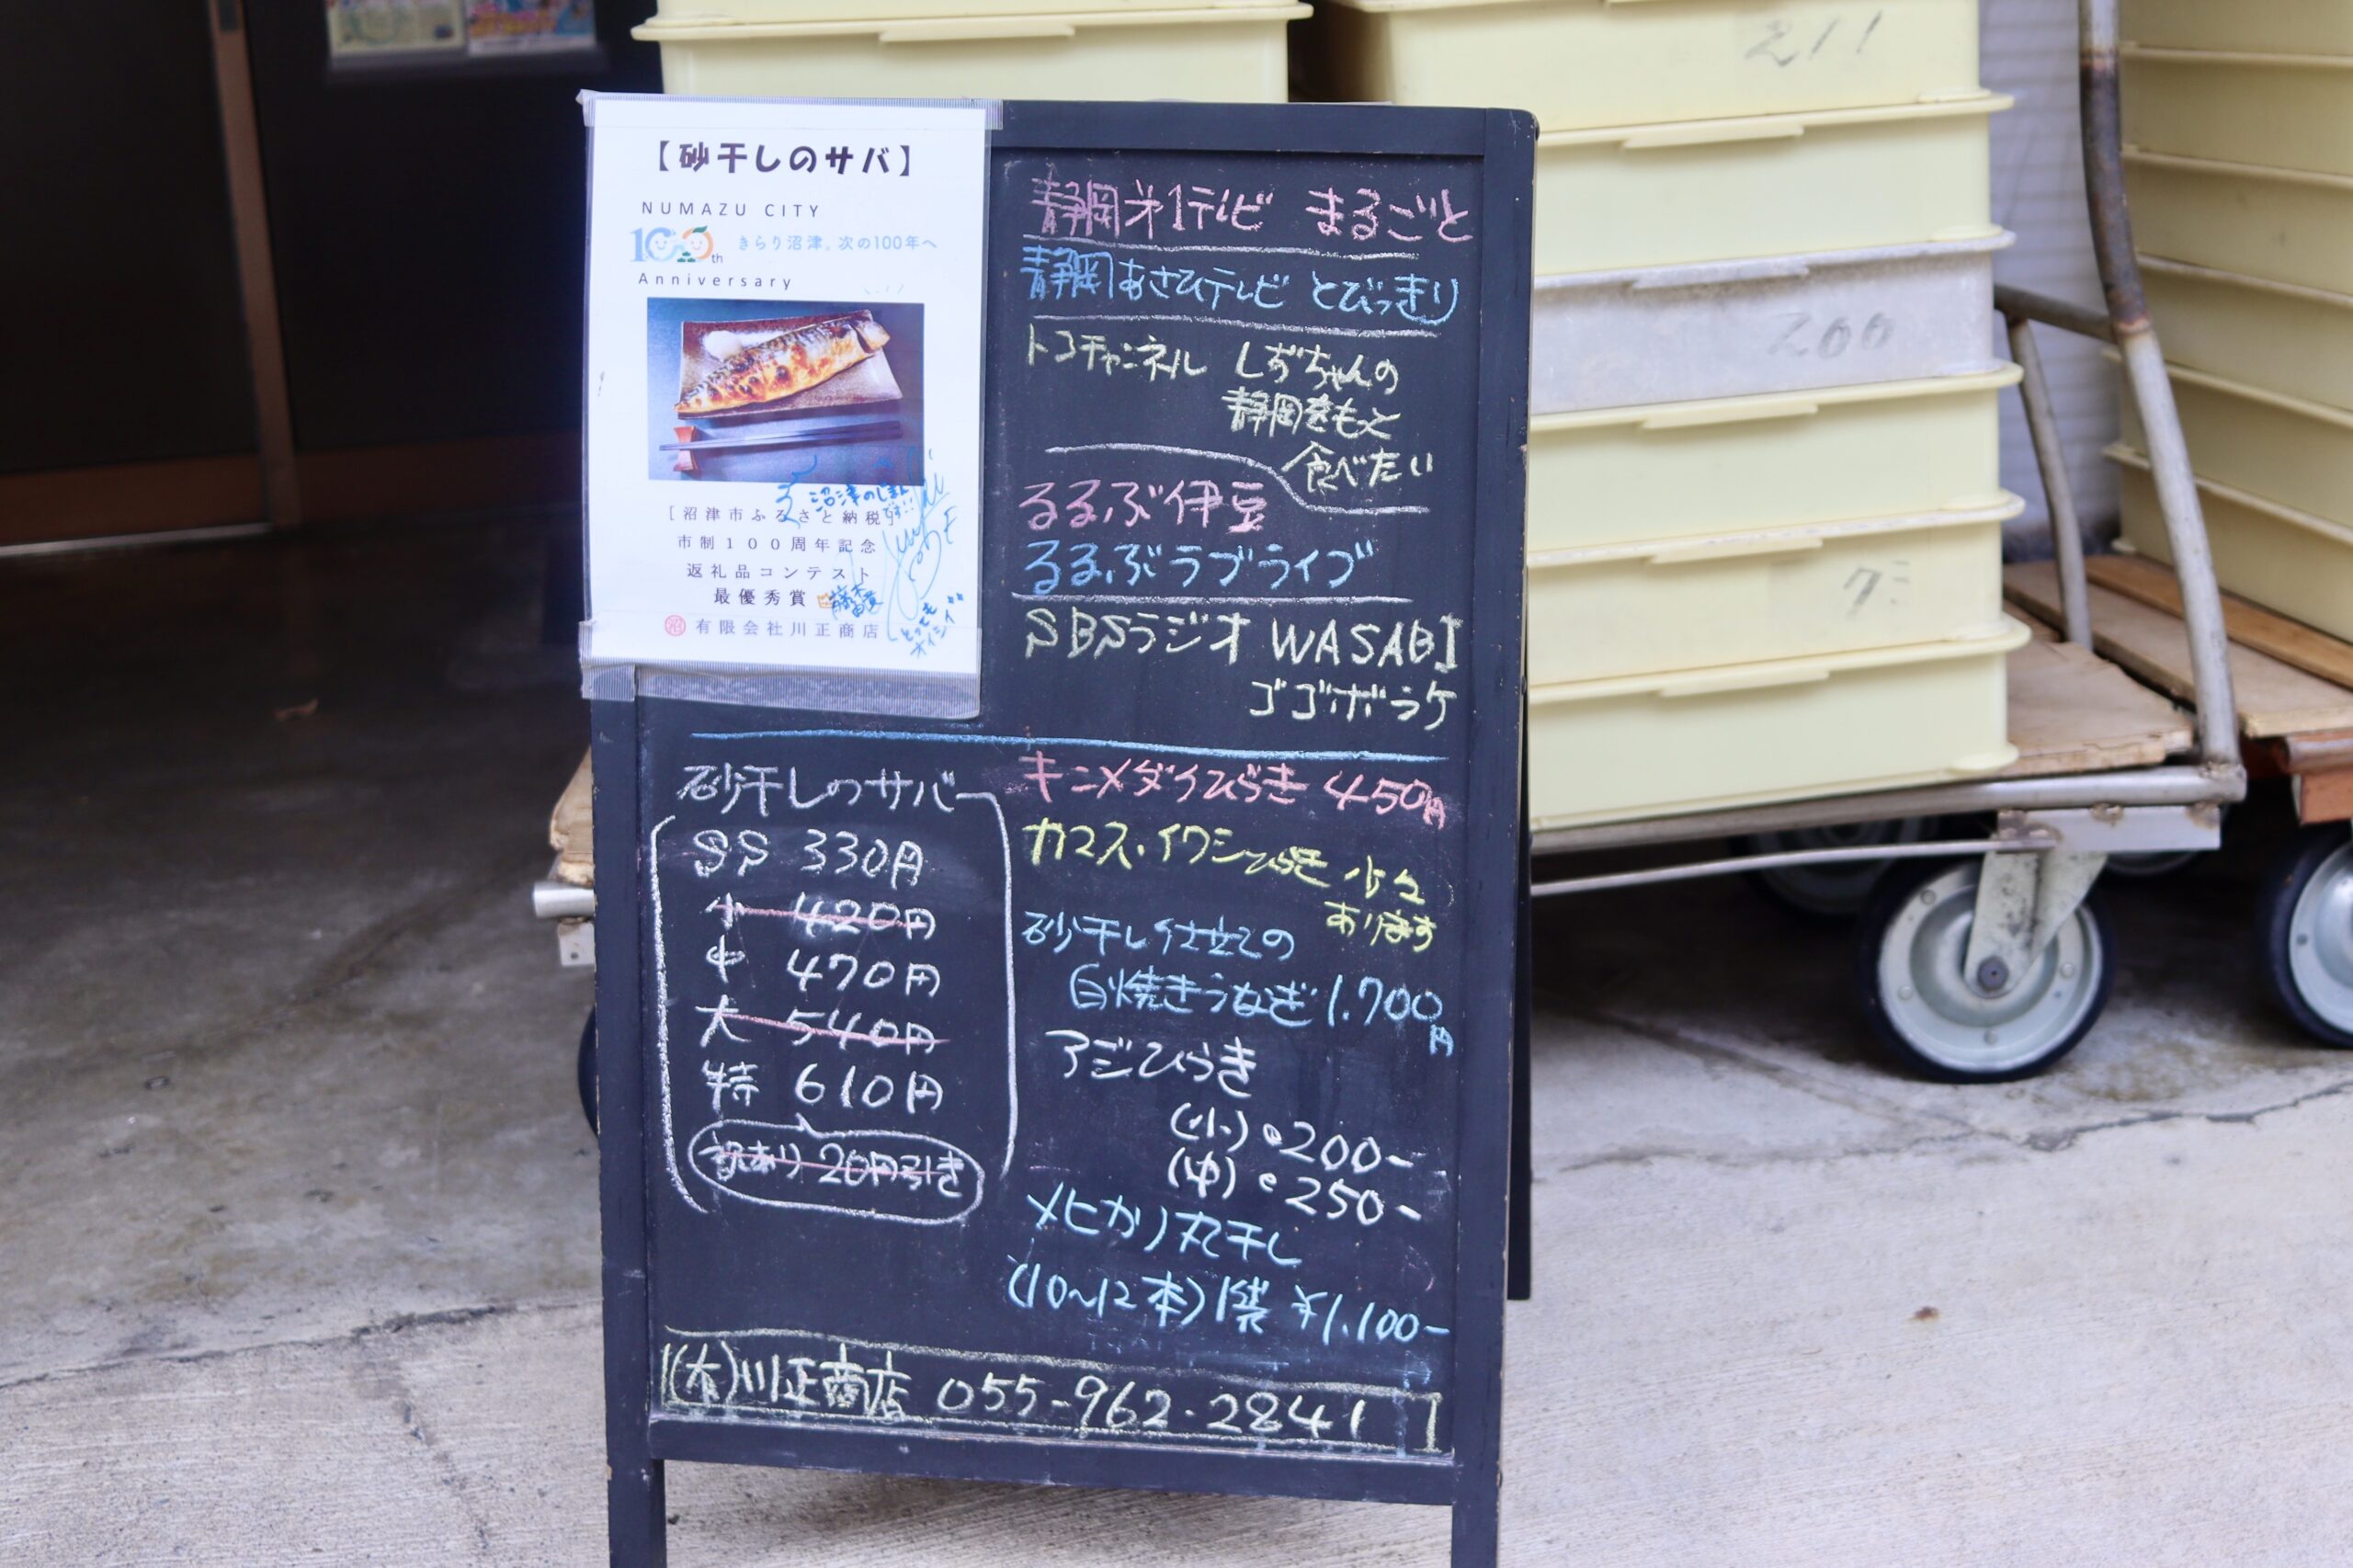 【砂干しのサバ】
NUMAZU CITY
100th きらり沼津。次の100年へ
Anniversary
沼津のじまん
です!!
[沼津市ふるさと納税]
市制100周年記念
返礼品コンテスト
最優秀賞
有限会社川正商店
とっても
オイシイ
静岡第1テレビ まるごと
静岡あさひテレビ とびっきり
トコチャンネル しずちゃんの
静岡をもっと
食べたい
るるぶ伊豆
るるぶラブライブ
SBSラジオ WASABI
ゴゴボラケ
砂干しのサバ
SS 330円
小 420円
中 470円
大 540円
特 610円
訳あり 20円引き
キンメダイひらき 450円
カマス.イワシひらき 少々
あります
砂干し仕立ての
白焼きうなぎ 1.700円
アジひらき
(小)・200-
(中)・250-
メヒカリ丸干し
(10~12本)1袋 ¥1.100-
(有)川正商店 055-962-2841
211
200